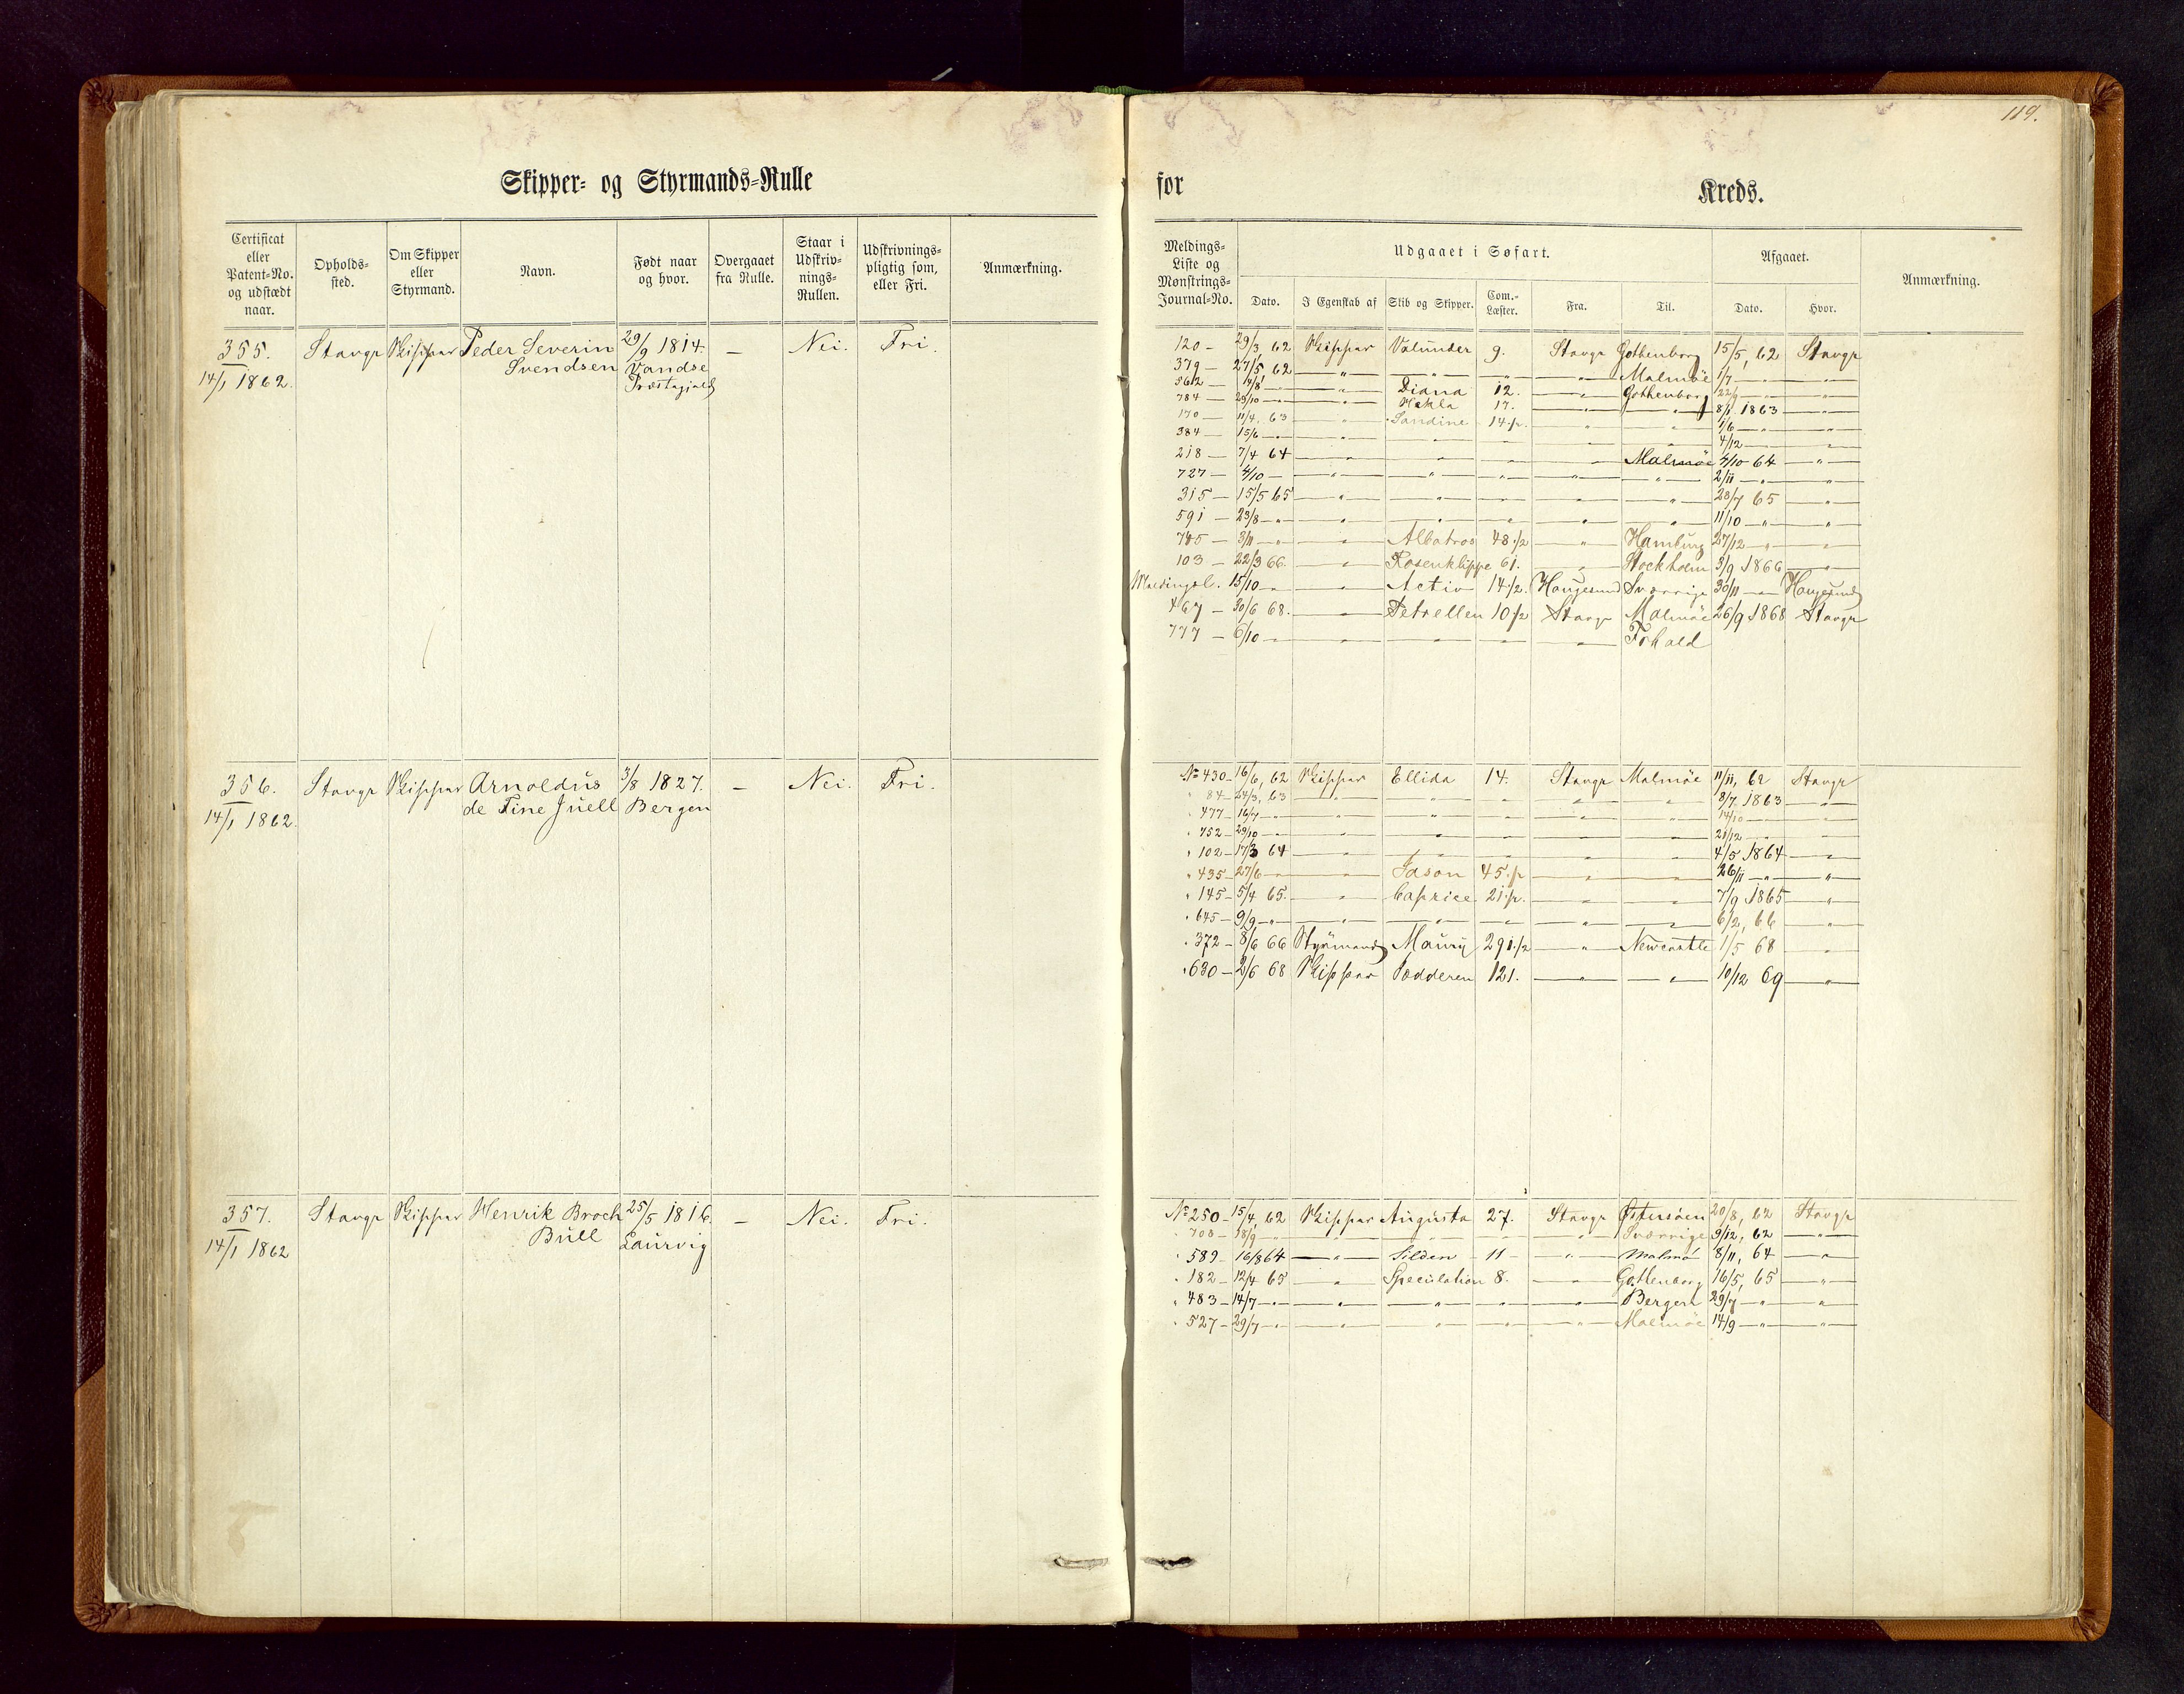 119.
Skipper- og Styrmands-Rulle for Kreds.
Certificat eller Patent-No. og udstædt naar. | Opholds-sted. | Om Skipper eller Styrmand. | Navn. | Født naar og hvor. | Overgaaet fra Rulle. | Staar i Udskriv-nings-Rullen. | Udskrivnings-pligtig som, eller Fri. | Anmærkning.
Meldings-Liste og Mønstrings-Journal-No. | Udgaaet i Søfart. | Afgaaet. | Anmærkning.
Dato. | I Egenskab af | Skib og Skipper. | Com.-Læster. | Fra. | Til. | Dato. | Hvor.
355. Stavgr Skipper Peder Severin 29/9 1814. — Nei. Fri.
14/1 1862. Svendsen Vandse
Præstegjæld
120 — 29/3, 62 Skipper Valunder 9. Stavgr Gothenborg 15/5, 62 Stavgr
379 — 27/5, 62 — " — — " — — " — — " — Malmöe 1/7 — " — — " —
562 — — " — — " — Diana 12. — " — Gothenborg — " — — " —
784 — 29/10 — " — — " — Hekla 17. — " — — " — 8/1 1863 — " —
170 — 11/4, 63 " Sandine 14 1/2. " " 1/6 — " — — " —
384 — 15/6 — " — — " — — " — — " — — " — — " — 4/12 — " —
218 — 7/4 64 — " — — " — — " — — " — Malmöe 4/10 64 — " —
727 — 4/10 — — " — — " — — " — — " — — " — 2/11 — " — — " —
315 — 15/5 65 — " — — " — — " — — " — — " — 28/7 65 — " —
591 — 23/8 — " — — " — — " — — " — — " — — " — 11/10 — " — — " —
745 — 3/11 — " — — " — Albatros 48 1/2 — " — Hamburg 27/12 — " — — " —
103 — 22/3 66. — " — Rosenklippe 61. — " — Stockholm 3/9 1866 — " —
Meldingsl. 15/10 — " — — " — Activ 14 1/2. Haugesund Sverrige 30/11 — " — Haugesund
467 — 30/6 68. — " — Petrellen 10 1/2 Stavgr Malmöe 26/9 1868 Stavgr
777 — 6/10 — " — — " — — " — — " — — " —
356. Stavgr Skipper Arnoldus 3/8 1827. — Nei. Fri.
14/1 1862. de Fine Juell Bergen
No 430 — 16/6, 62 Skipper Ellida 14. Stavgr Malmöe 11/11, 62 Stavgr
" 84 — 24/3, 63 — " — — " — — " — — " — — " — 8/7 1863 — " —
" 477 — 16/7 — " — — " — — " — — " — — " — — " — 14/10 — " — — " —
" 752 — 29/10 — " — — " — — " — — " — — " — — " — 21/12 — " — — " —
" 102 — 17/3 64 — " — — " — — " — — " — — " — 4/5 1864 — " —
" 435 — 27/6 — " — — " — Jason 45 1/2 — " — — " — 26/11 — " — — " —
" 145 — 5/4 65. — " — Caprice 21 1/2. — " — — " — 7/9 1865 — " —
" 645 — 9/9 — " — — " — — " — — " — — " — — " — 6/2, 66 — " —
" 372 — 8/6 66 Styrmand Maury 291 1/2 — " — Newcastle 1/5 68 "
" 630 — 2/6 68 Skipper Jædderen 121. — " — — " — 10/12 69 — " —
357. Stavgr Skipper Henrik Broch 25/5 1816. — Nei. Fri.
14/1 1862 Bull Laurvig
No 250 — 15/4, 62 Skipper Augusta 27. Stavgr Østersöen 20/8, 62 Stavgr
" 700 — 18/9 — " — — " — — " — — " — — " — Sverrige 9/12, 62 — " —
" 589 — 16/8 64 — " — Silden — 11 — — " — Malmö 8/11, 64 — " —
" 182 — 12/4 65 — " — Speculation 8. — " — Gothenborg 16/5, 65 — " —
" 483 — 14/7 — " — — " — — " — — " — — " — Bergen 29/7 — " — — " —
" 527 — 29/7 — " — — " — — " — — " — — " — Malmöe 14/9 — " — — " —